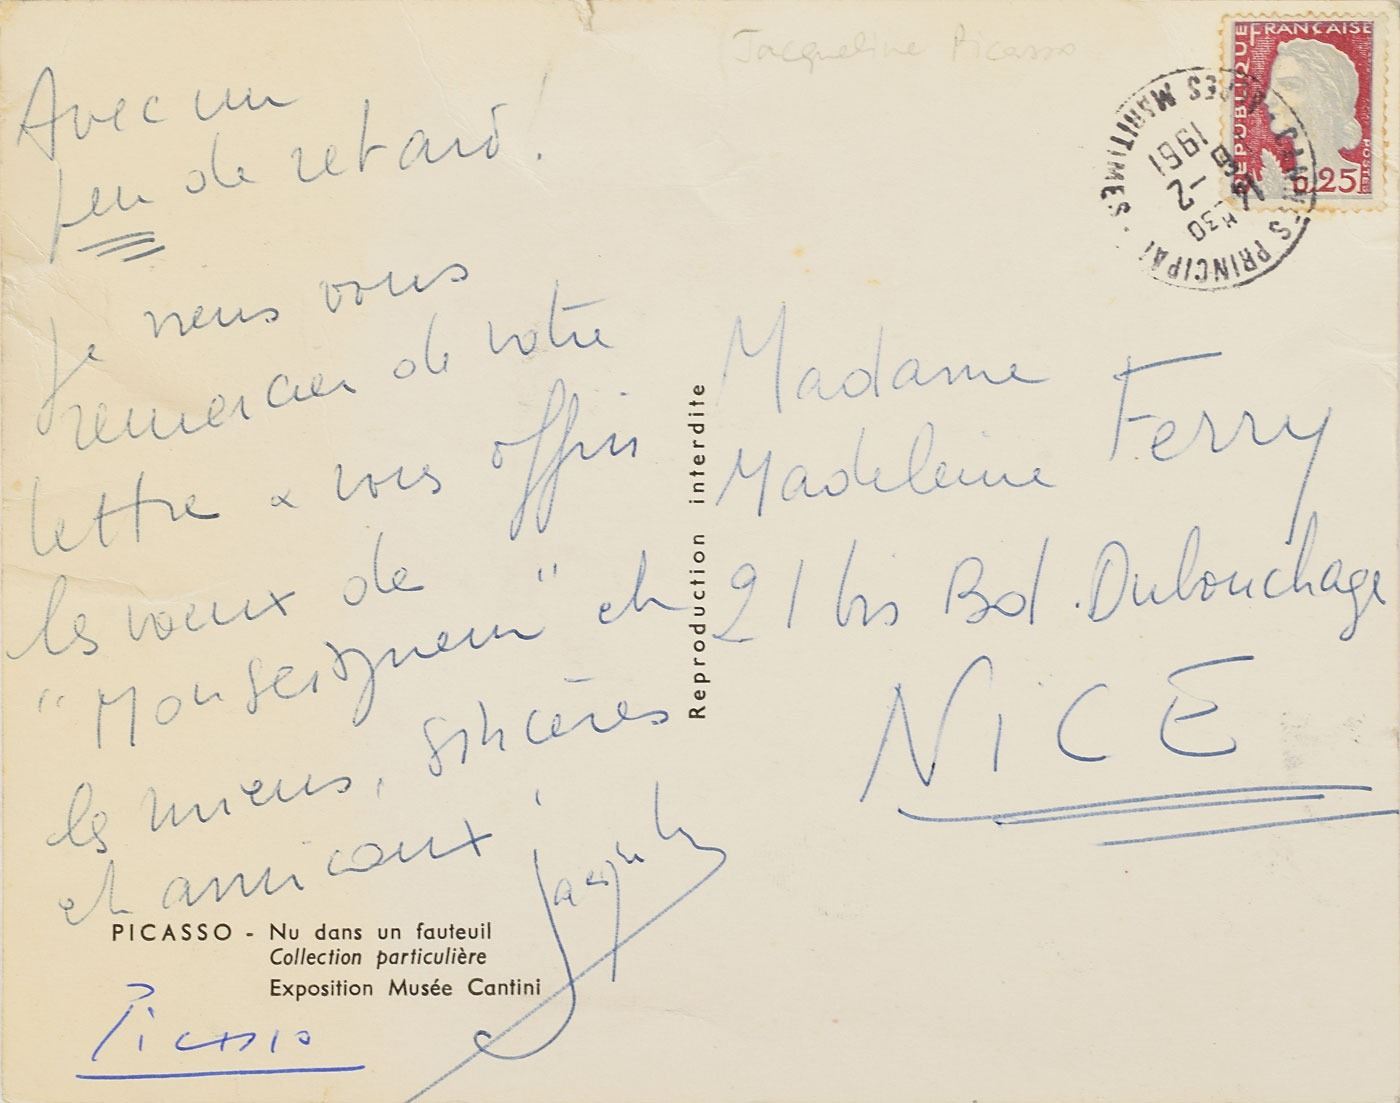 Jacqueline Picasso
RÉPUBLIQUE FRANÇAISE
POSTES
0,25
CANNES PRINCIPAL · ALPES MARITIMES ·
H30
-2
1961
Avec un
peu de retard !
Je viens vous
remercier de votre
lettre & vous offrir
les voeux de
"Monseigneur" et
les miens, sincères
et amicaux
Jacqueline
PICASSO - Nu dans un fauteuil
Collection particulière
Exposition Musée Cantini
Picasso
Reproduction interdite
Madame
Madeleine Ferry
21 bis Bd. Dubouchage
NICE